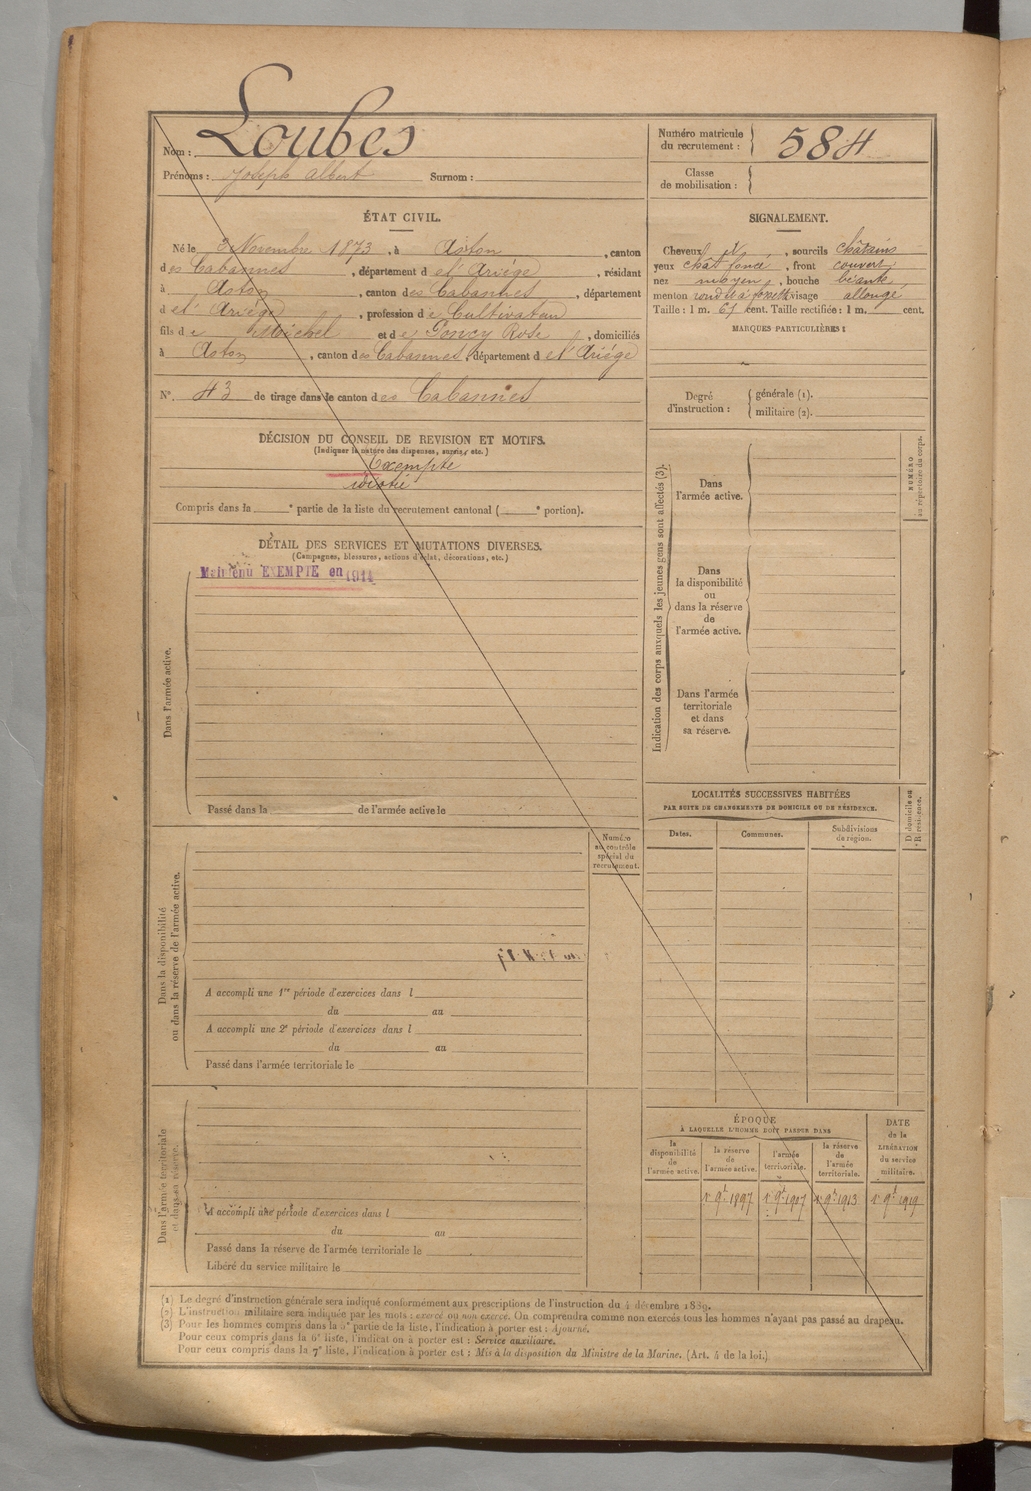 Nom : Loubes
Prénoms : Joseph Albert Surnom :
Numéro matricule du recrutement : 584
Classe de mobilisation :
ÉTAT CIVIL.
Né le 3 Novembre 1873, à Aston, canton
des Cabannes, département de l'Ariège, résidant
à Aston, canton des Cabannes, département
de l'Ariège, profession de Cultivateur
fils de Michel et de Goncy Rose, domiciliés
à Aston, canton des Cabannes, département de l'Ariège
N°. 43 de tirage dans le canton des Cabannes
SIGNALEMENT.
Cheveux et, sourcils châtains
yeux chât foncé, front couvert
nez moyen, bouche béante
menton rond à fossette visage allongé
Taille : 1 m. 61 cent. Taille rectifiée : 1 m. cent.
MARQUES PARTICULIÈRES :
Degré d'instruction : générale (1).
militaire (2).
DÉCISION DU CONSEIL DE REVISION ET MOTIFS.
(Indiquer la nature des dispenses, sursis, etc.)
Exempté
idiotie
Compris dans la e partie de la liste du recrutement cantonal ( e portion).
DÉTAIL DES SERVICES ET MUTATIONS DIVERSES.
(Campagnes, blessures, actions d'éclat, décorations, etc.)
Maintenu EXEMPTE en 1914
Dans l'armée active.
Passé dans la de l'armée active le
Indication des corps auxquels les jeunes gens sont affectés (3).
NUMÉRO au répertoire du corps.
Dans l'armée active.
Dans la disponibilité ou dans la réserve de l'armée active.
Dans l'armée territoriale et dans sa réserve.
LOCALITÉS SUCCESSIVES HABITÉES
PAR SUITE DE CHANGEMENTS DE DOMICILE OU DE RÉSIDENCE.
Dates. Communes. Subdivisions de région. D domicile ou R résidence.
Numéro au contrôle spécial du recrutement.
Dans la disponibilité ou dans la réserve de l'armée active.
A accompli une 1re période d'exercices dans l
du au
A accompli une 2e période d'exercices dans l
du au
Passé dans l'armée territoriale le
Dans l'armée territoriale et dans sa réserve.
A accompli une période d'exercices dans l
du au
Passé dans la réserve de l'armée territoriale le
Libéré du service militaire le
ÉPOQUE
À LAQUELLE L'HOMME DOIT PASSER DANS
la disponibilité de l'armée active.
la réserve de l'armée active.
l'armée territoriale.
la réserve de l'armée territoriale.
DATE de la LIBÉRATION du service militaire.
1r 9bre 1897 1r 9bre 1907 1r 9bre 1913 1r 9bre 1919
(1) Le degré d'instruction générale sera indiqué conformément aux prescriptions de l'instruction du 4 décembre 1889.
(2) L'instruction militaire sera indiquée par les mots : exercé ou non exercé. On comprendra comme non exercés tous les hommes n'ayant pas passé au drapeau.
(3) Pour les hommes compris dans la 5e partie de la liste, l'indication à porter est : Ajourné.
Pour ceux compris dans la 6e liste, l'indication à porter est : Service auxiliaire.
Pour ceux compris dans la 7e liste, l'indication à porter est : Mis à la disposition du Ministre de la Marine. (Art. 4 de la loi.)